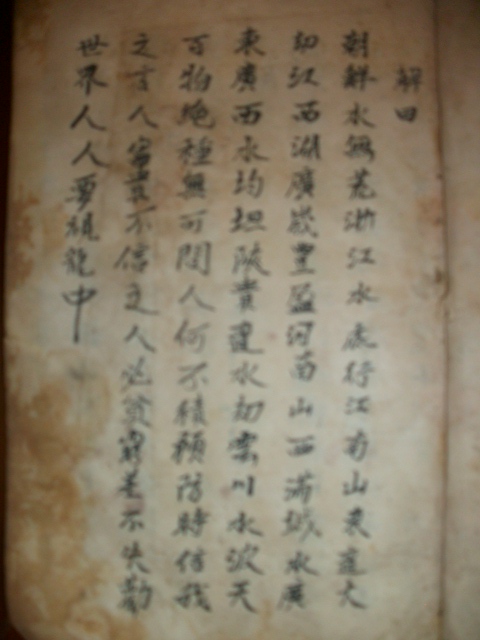 解曰
朝鮮水無荒浙江水處行江南山東直大
却江西湖廣歲豐盈河南山西滿城水廣
東廣西水均坦陝貴水却雲川水波天
百物絶種無可問人何不積預防時信我
之言人富貴不信之人必貧窮是不失勸
世界人人夢龍中